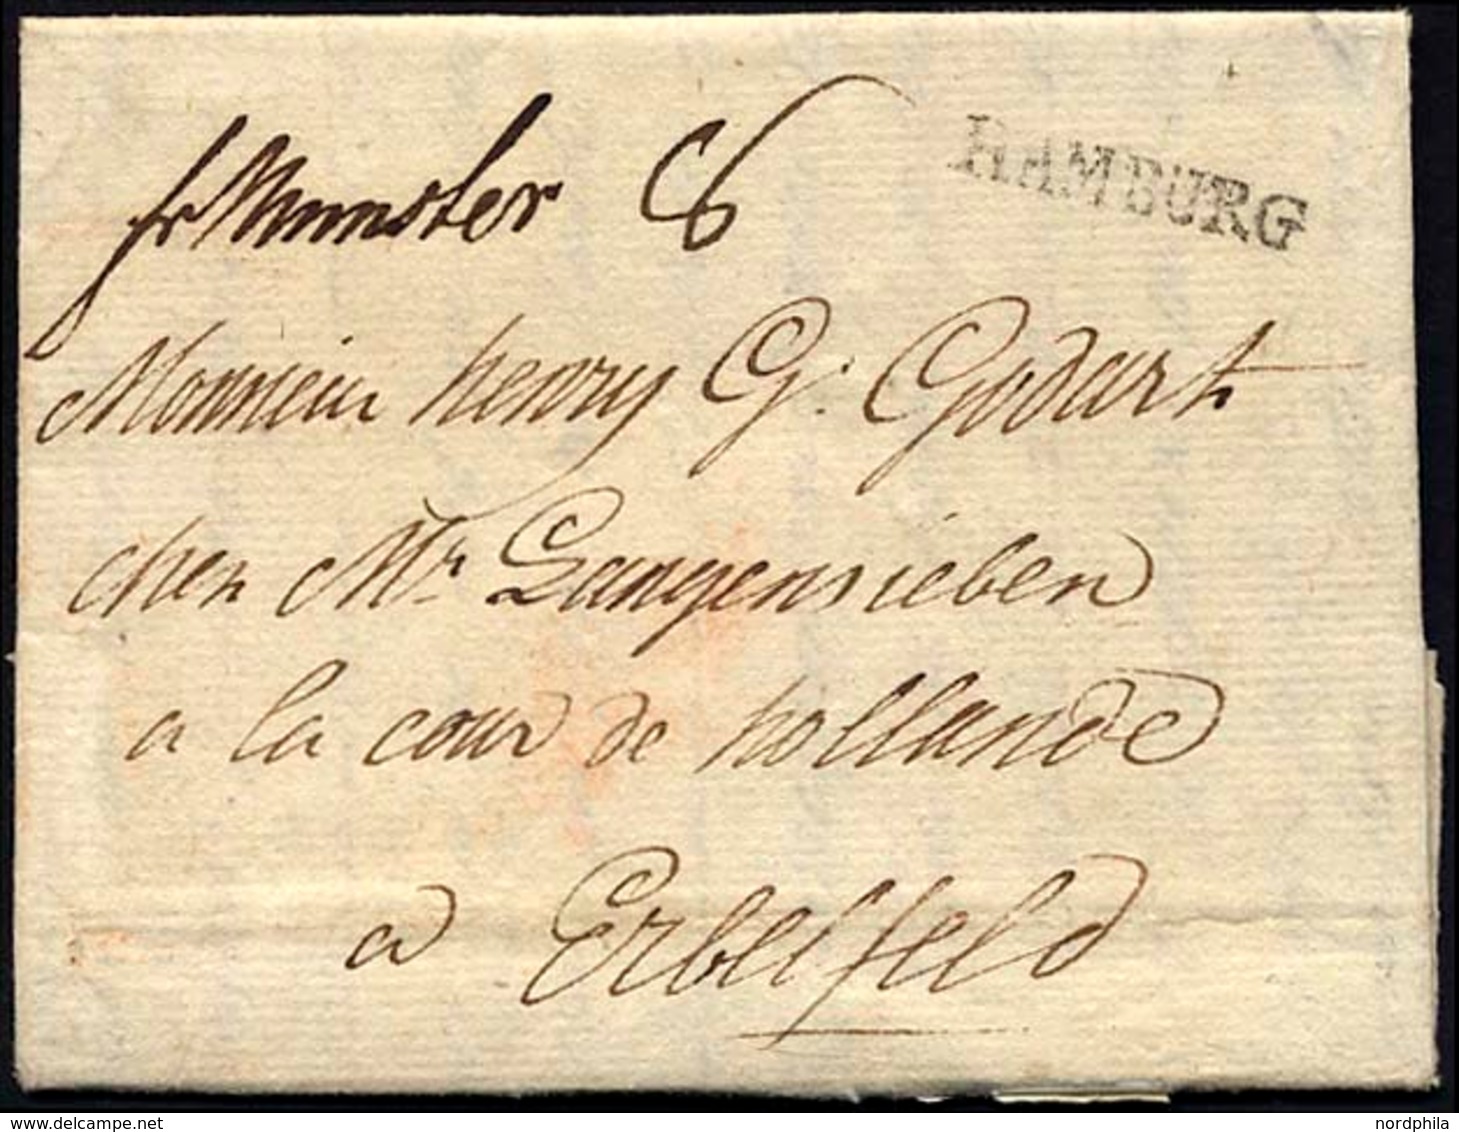 fr Munster 6
HAMBURG
Monsieur henry G: Godart
chez Mr. Langensieben
a la cour de hollande
a Erbelfeld
nordphila